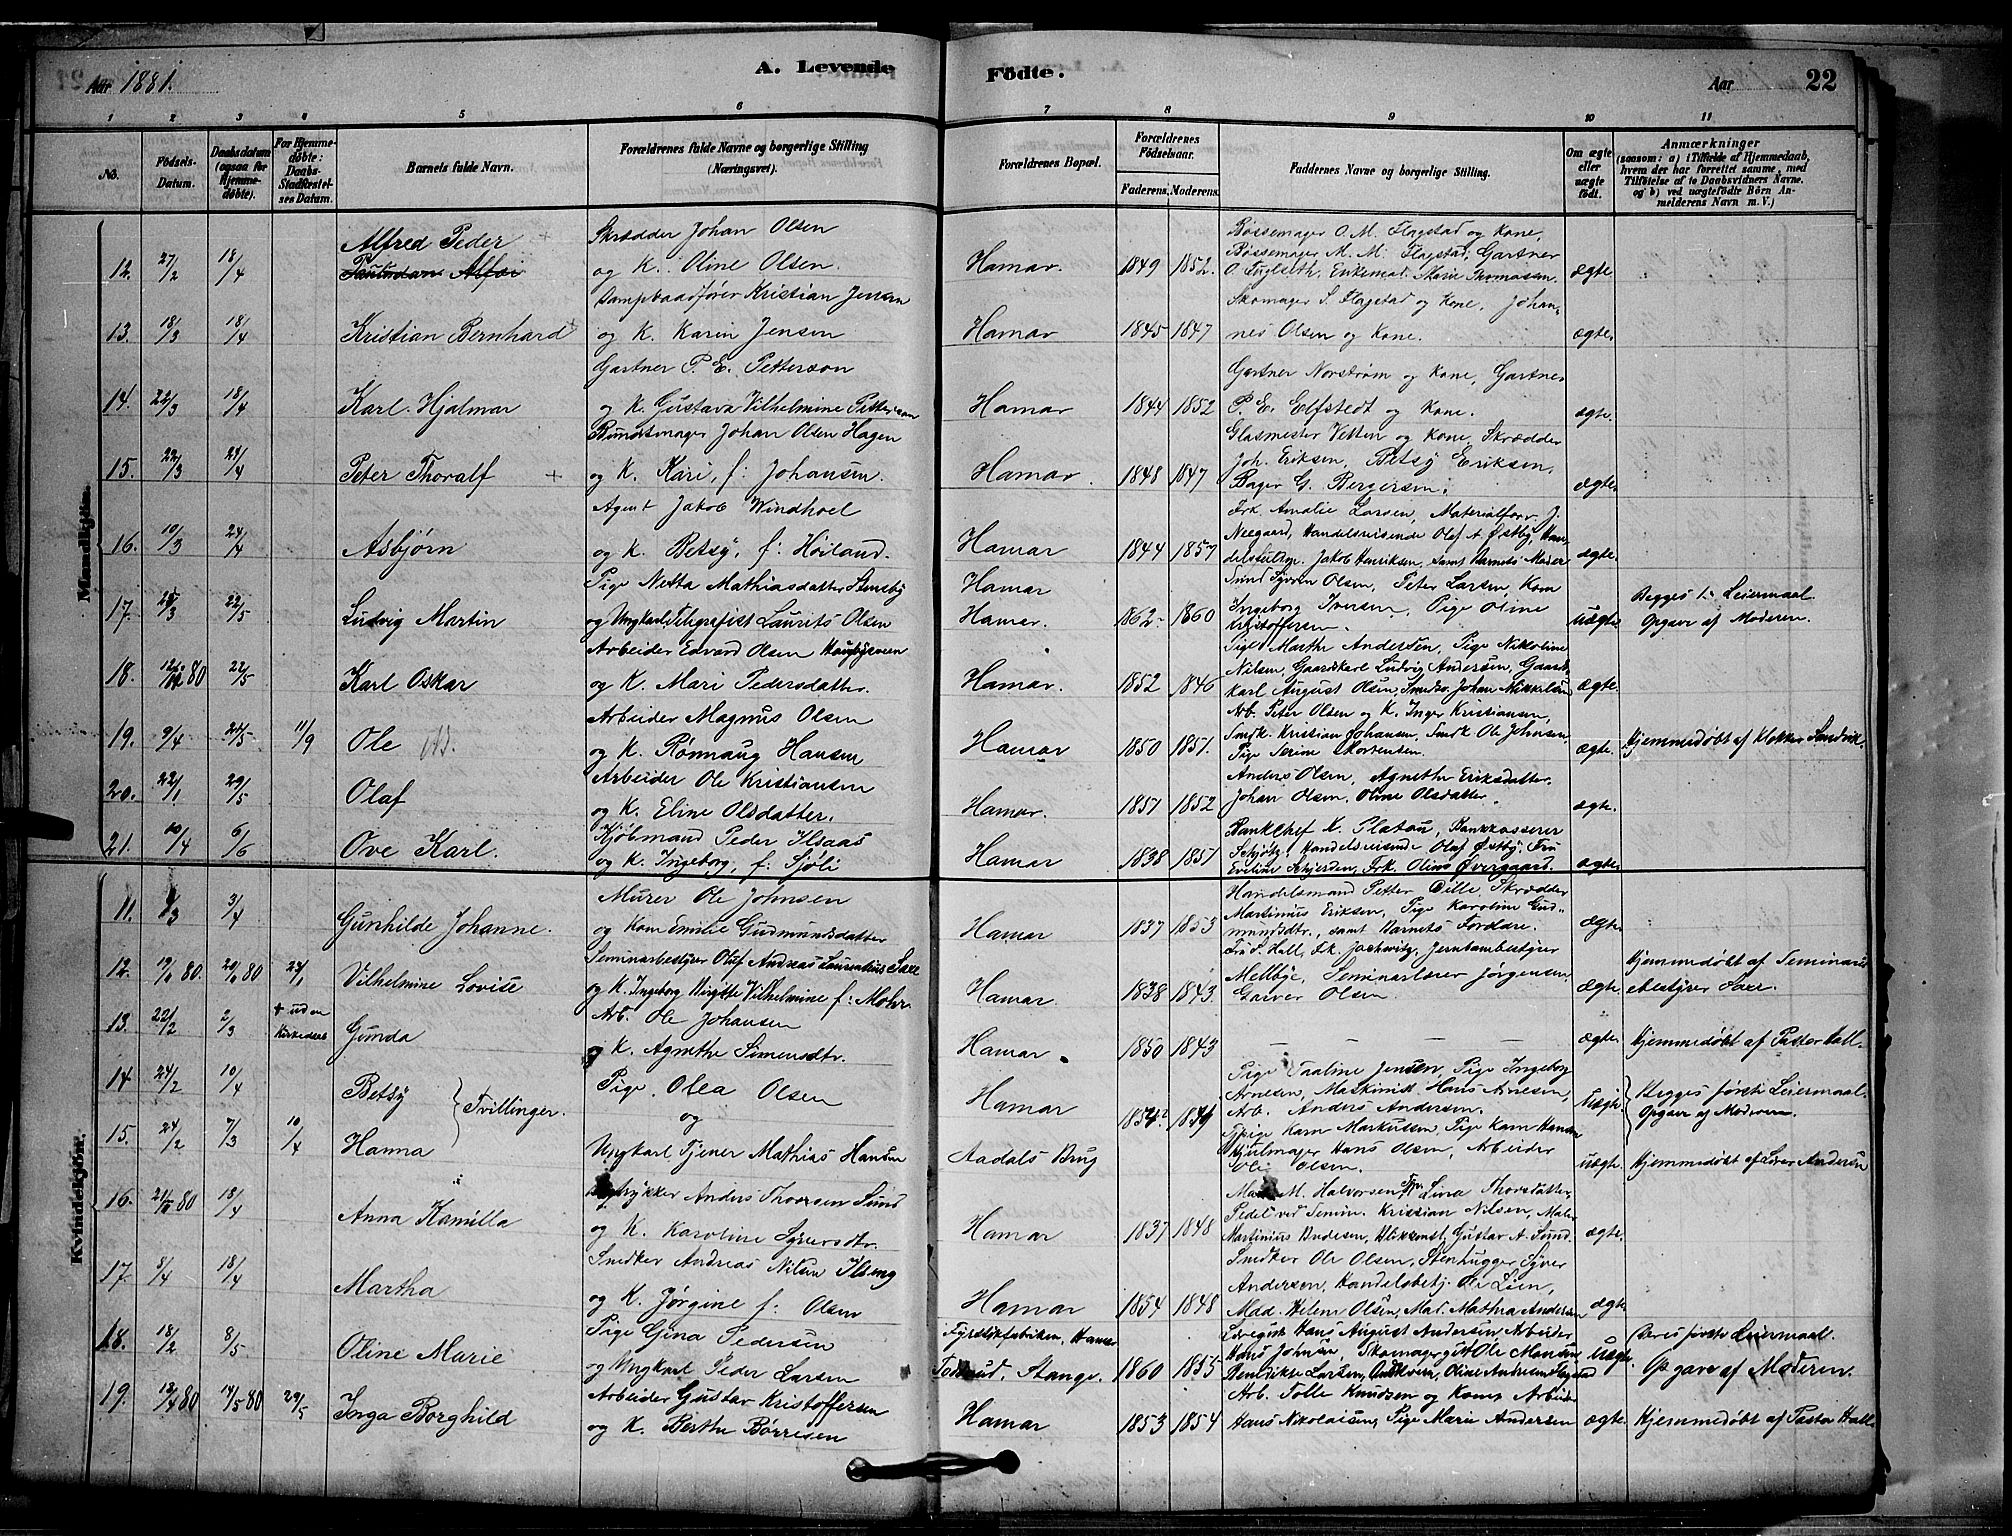 Aar 1881. A. Levende Födte. Aar 22
1 2 3 4 5 6 7 8 9 10 11
No. Födsels-Datum. Daabsdatum (ogsaa for Hjemmedöbte). For Hjemmedöbte: Daabs-Stadfæstelses Datum. Barnets fulde Navn. Forældrenes fulde Navne og borgerlige Stilling (Næringsvei). Forældrenes Bopæl. Forældrenes Födselsaar. Faderens. Moderens. Faddernes Navne og borgerlige Stilling. Om ægte eller uægte födt. Anmærkninger (saasom: a) i Tilfælde af Hjemmedaab, hvem der har forrettet samme, med Tilföielse af to Daabsvidners Navne. og b) ved uægtefödte Börn Anmelderens Navn m. V.)
Mandkjön.
Alfred Peder Skrædder Johan Olsen Bøssemager O. M. Flagstad og Kone,
12. 27/2 18/4 og K. Oline Olsen. Hamar. 1849 1852. Bøssemager M. M. Flagstad, Gartner
O. Fuglseth, Enkemad. Marie Thomasen. ægte
Dampbaadfører Kristian Jensen Skomager S. Flagstad og Kone, Johan-
13. 18/3 18/4 Kristian Bernhard og K. Karin Jensen Hamar 1845 1847 nes Olsen og Kone. ægte
Gartner P. E. Petterson Gartner Norstrøm og Kone, Gartner
14. 22/3 18/4 Karl Hjalmar og K. Gustava Vilhelmine Petterson Hamar 1844 1852 P. E. Elfstedt og Kone. ægte
Bundtmager Johan Olsen Hagen Glasmester Vetten og Kone, Skrædder
15. 22/3 24/4 Peter Thoralf og K. Kari, f: Johansen Hamar. 1848 1847 Joh. Eriksen, Betsy Eriksen,
Bager G. Bergersen. ægte
Agent Jakob Windhoel Frk. Amalie Larsen, Materialforv. J.
16. 10/3 24/4 Asbjørn og K. Betsy, f: Høiland. Hamar 1844 1857 Neegaard, Handelsreisende Olaf A. Østby, Han-
Jakob Henriksen, samt Barnets Moder ægte
Pige Netta Mathiasdatter Stensby Hamar Olsen, Peter Larsen, Kone
17. 22/5 Ludvig Martin og Ungkarl Telegrafist Laurits Olsen Hamar. 1862 1860 Ingeborg Iversen, Pige Oline
Kristoffersen. uægte Begges 1. Leiermaal. Opgave af Moderen.
Arbeider Edvard Olsen Pige Marthe Andersen, Pige Nikoline
18. 80 22/5 Karl Oskar og K. Mari Pedersdatter. Hamar. 1852 1846 Nilsen, Gaardskarl Ludvig Andersen, Gaards-
karl August Olsen, Johan Mikkelsen ægte
Arbeider Magnus Olsen Arb. Peter Olsen og K. Inger Kristiansen,
19. 9/4 24/5 11/9 Ole og K. Rønnaug Hansen Hamar 1850 1851. Smdk. Kristian Johansen, Smdk Ole Johnsen,
Pige Serine Mortensen. ægte Hjemmedøbt af Klokker Sandvik.
Arbeider Ole Kristiansen Anders Olsen, Agnethe Eriksdatter.
20. 22/1 29/5 Olaf og K. Eline Olsdatter. Hamar. 1851 1852 Johan Olsen, Oline Olsdatter. ægte
Kjøbmand Peder Ilsaas Bankchef N. Platou, Bankkasserer
21. 10/4 6/6 Ove Karl. og K. Ingeborg, f. Sjøli Hamar 1838 1851 Schjøtz, Handelsreisende Olaf Østby, Fru
Eveline Schjerden, Frk. Oline Øvergaard. ægte
Kvindekjön.
Murer Ole Johnsen Handelsmand Petter Skrædder
11. 3/4 Gunhilde Johanne. og Kone Emilie Gudmundsdatter Hamar 1837 1853 Martinus Eriksen, Pige Karoline Gud-
mundsdtr., samt Barnets Forældre. ægte
Seminarbestyrer Oluf Andreas Laurentius Saxe Fru S. Hall, Jernbanebestyrer
12. 80 80 24/1 Vilhelmine Lovise og K. Ingeborg Birgitte Vilhelmine f: Mohr Hamar. 1838 1843. Mellbye, Seminarlærer Jørgensen
Garver Olsen. ægte Hjemmedøbt af Seminarie-
bestyrer Saxe.
13. 22/2 2/3 + uden Gunda Arb. Ole Johansen
og K. Agnethe Simensdtr. Hamar. 1850 1843 ægte Hjemmedøbt af Pastor Hall.
14 24/2 10/4 Betsy Pige Olea Olsen Hamar Pige Paaline Jensen, Pige Ingeborg
Tvillinger. og Arnesen, Maskinist Hans Arnesen,
Arb. Anders Andersen. uægte Begges første Leiermaal.
Opgave af Moderen.
15. 24/2 7/3 10/4 Hanna Ungkarl Tjener Mathias Hansen Aadals Brug Pige Karn Markussen, Pige Karn Hansen
Hjulmager Hans Olsen, Arbeider
Ole Olsen. uægte Hjemmedøbt af Lærer Andersen
16. 80 18/4 Anna Kamilla Anders Thorsen Sund M. Halvorsen, Lina Thorsdatter,
og K. Karoline Syversdtr. Hamar 1837 1848 Pedel ved Semin. Kristian Nilsen, Maler
Martinius Andesen, Blikkensl. Gustav A. Sund. ægte
17. 5/4 18/4 Martha Smedker Andreas Nilsen Ilseng Smedker Ole Olsen, Stenhugger Syver
og K. Jørgine f: Olsen Hamar 1854 1848 Andersen, Handelsbetj. Ole Lien,
Mad. Helene Olsen, Mad. Mathea Andersen ægte
18. 18/2 8/5 Oline Marie Pige Gina Pedersen Fyrstikfabriken, Hamar Hans August Andersen Arbeider
og Ungkarl Peder Larsen Stange. 1860 1855 Hans Johnsen, Skomager Ole Hansen
Benedikte Larsen, Oline Andresen uægte Deres første Leiermaal.
Opgave af Moderen.
19. 80 80 29/5 Inga Borghild Arbeider Gustav Kristoffersen Arb. Tolle Knudsen og Kone, Arbeider
og K. Berthe Børresen Hamar 1853 1854 Hans Nikolaisen, Pige Marie Andersen ægte Hjemmedøbt af Pastor Hall.